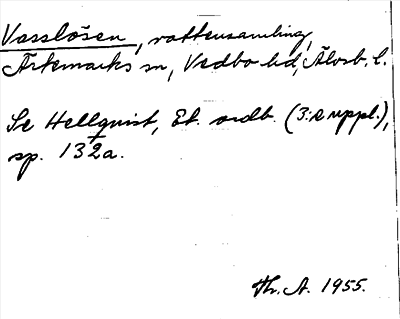 Vasslösen, vattensamling,
Ärtemarks sn, Vedbo hd, Älvsb. l.
Se Hellquist, Et. ordb. (3:e uppl.),
sp. 132a.
Th. A. 1955.